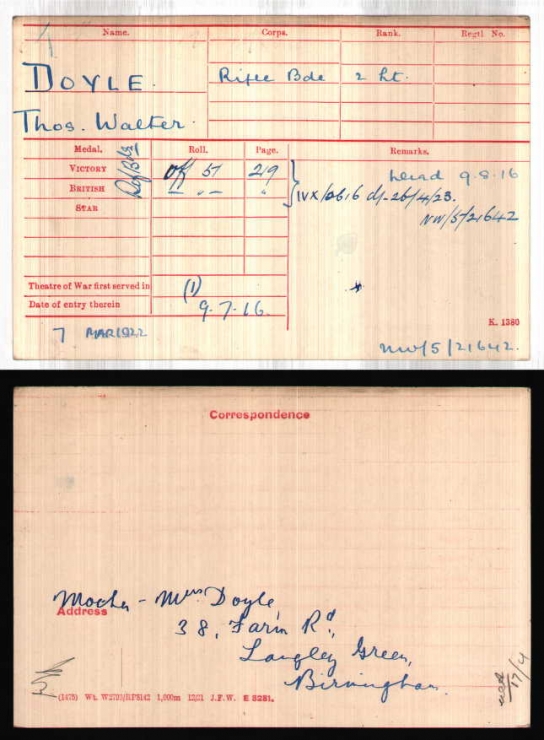 Name. Corps. Rank. Regtl. No.
DOYLE. Rifle Bde 2 Lt.
Thos. Walter.
Medal. Roll. Page. Remarks.
VICTORY Off 51 219 dead 9.8.16
BRITISH — " — "
IVX/2616 d/- 26/4/23.
STAR NW/5/21642
Theatre of War first served in (1)
Date of entry therein 9.7.16.
K. 1380
7 MAR 1922
NW/5/21642.
Correspondence
Mother - Mrs Doyle
Address
38, Farm Rd,
Langley Green,
Birmingham.
17/4
(1473) Wt. W2707/RP8142 1,000m 12/21 J.F.W. E 3281.